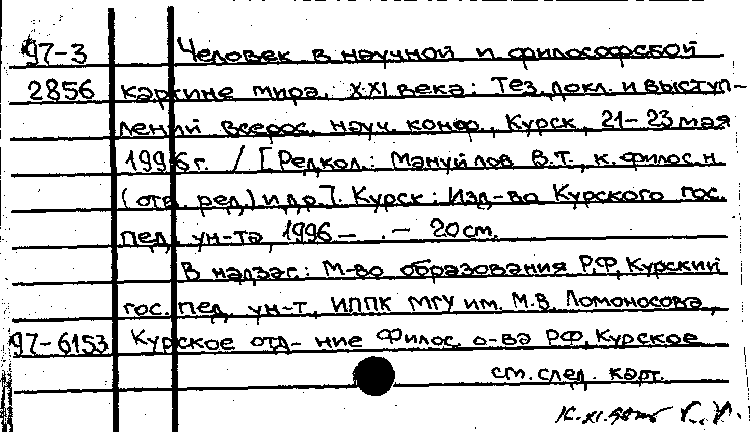 97-3 Человек в научной и философской
2856 картине мира. XXI века: Тез. докл. и выступ-
лений всерос. науч. конф., Курск, 21-23 мая
1996г. / [Редкол.: Мануйлов В.Т., к. филос. н.
(отв. ред.) и др.]. Курск: Изд-во Курского гос.
пед. ун-та, 1996 - . - 20 см.
В надзаг.: М-во образования РФ, Курский
гос. пед. ун-т, ИППК МГУ им. М.В. Ломоносова,
97-6153 Курское отд-ние Филос. о-ва РФ, Курское
см. след. карт.